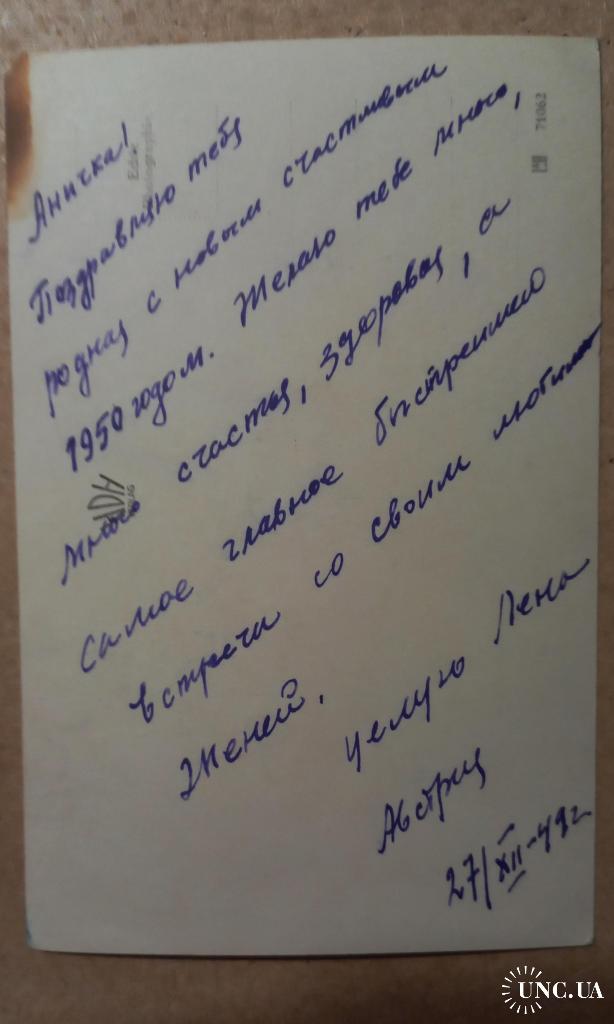 Аничка!
Поздравляю тебя
родная с новым счастливым
1950 годом. Желаю тебе много,
много счастья, здоровья, а
самое главное быстрейшей
встречи со своим любимым
Женей.
целую Лена
Австрия
27/XII-49г
71062
UNC.UA